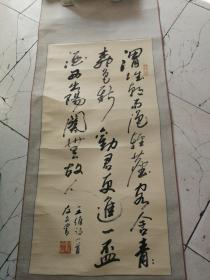 渭城朝雨浥輕塵客舍青〻
柳色新勸君更進一盃
酒西出陽關無故人
王維詩一首